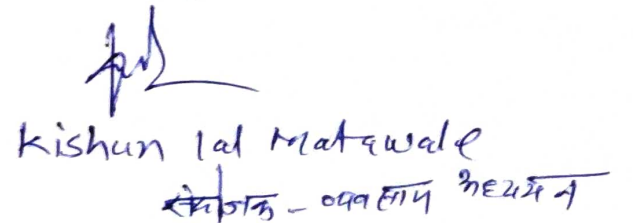 Kishun lal Matawale
संयोजक - व्यवसाय अध्ययन